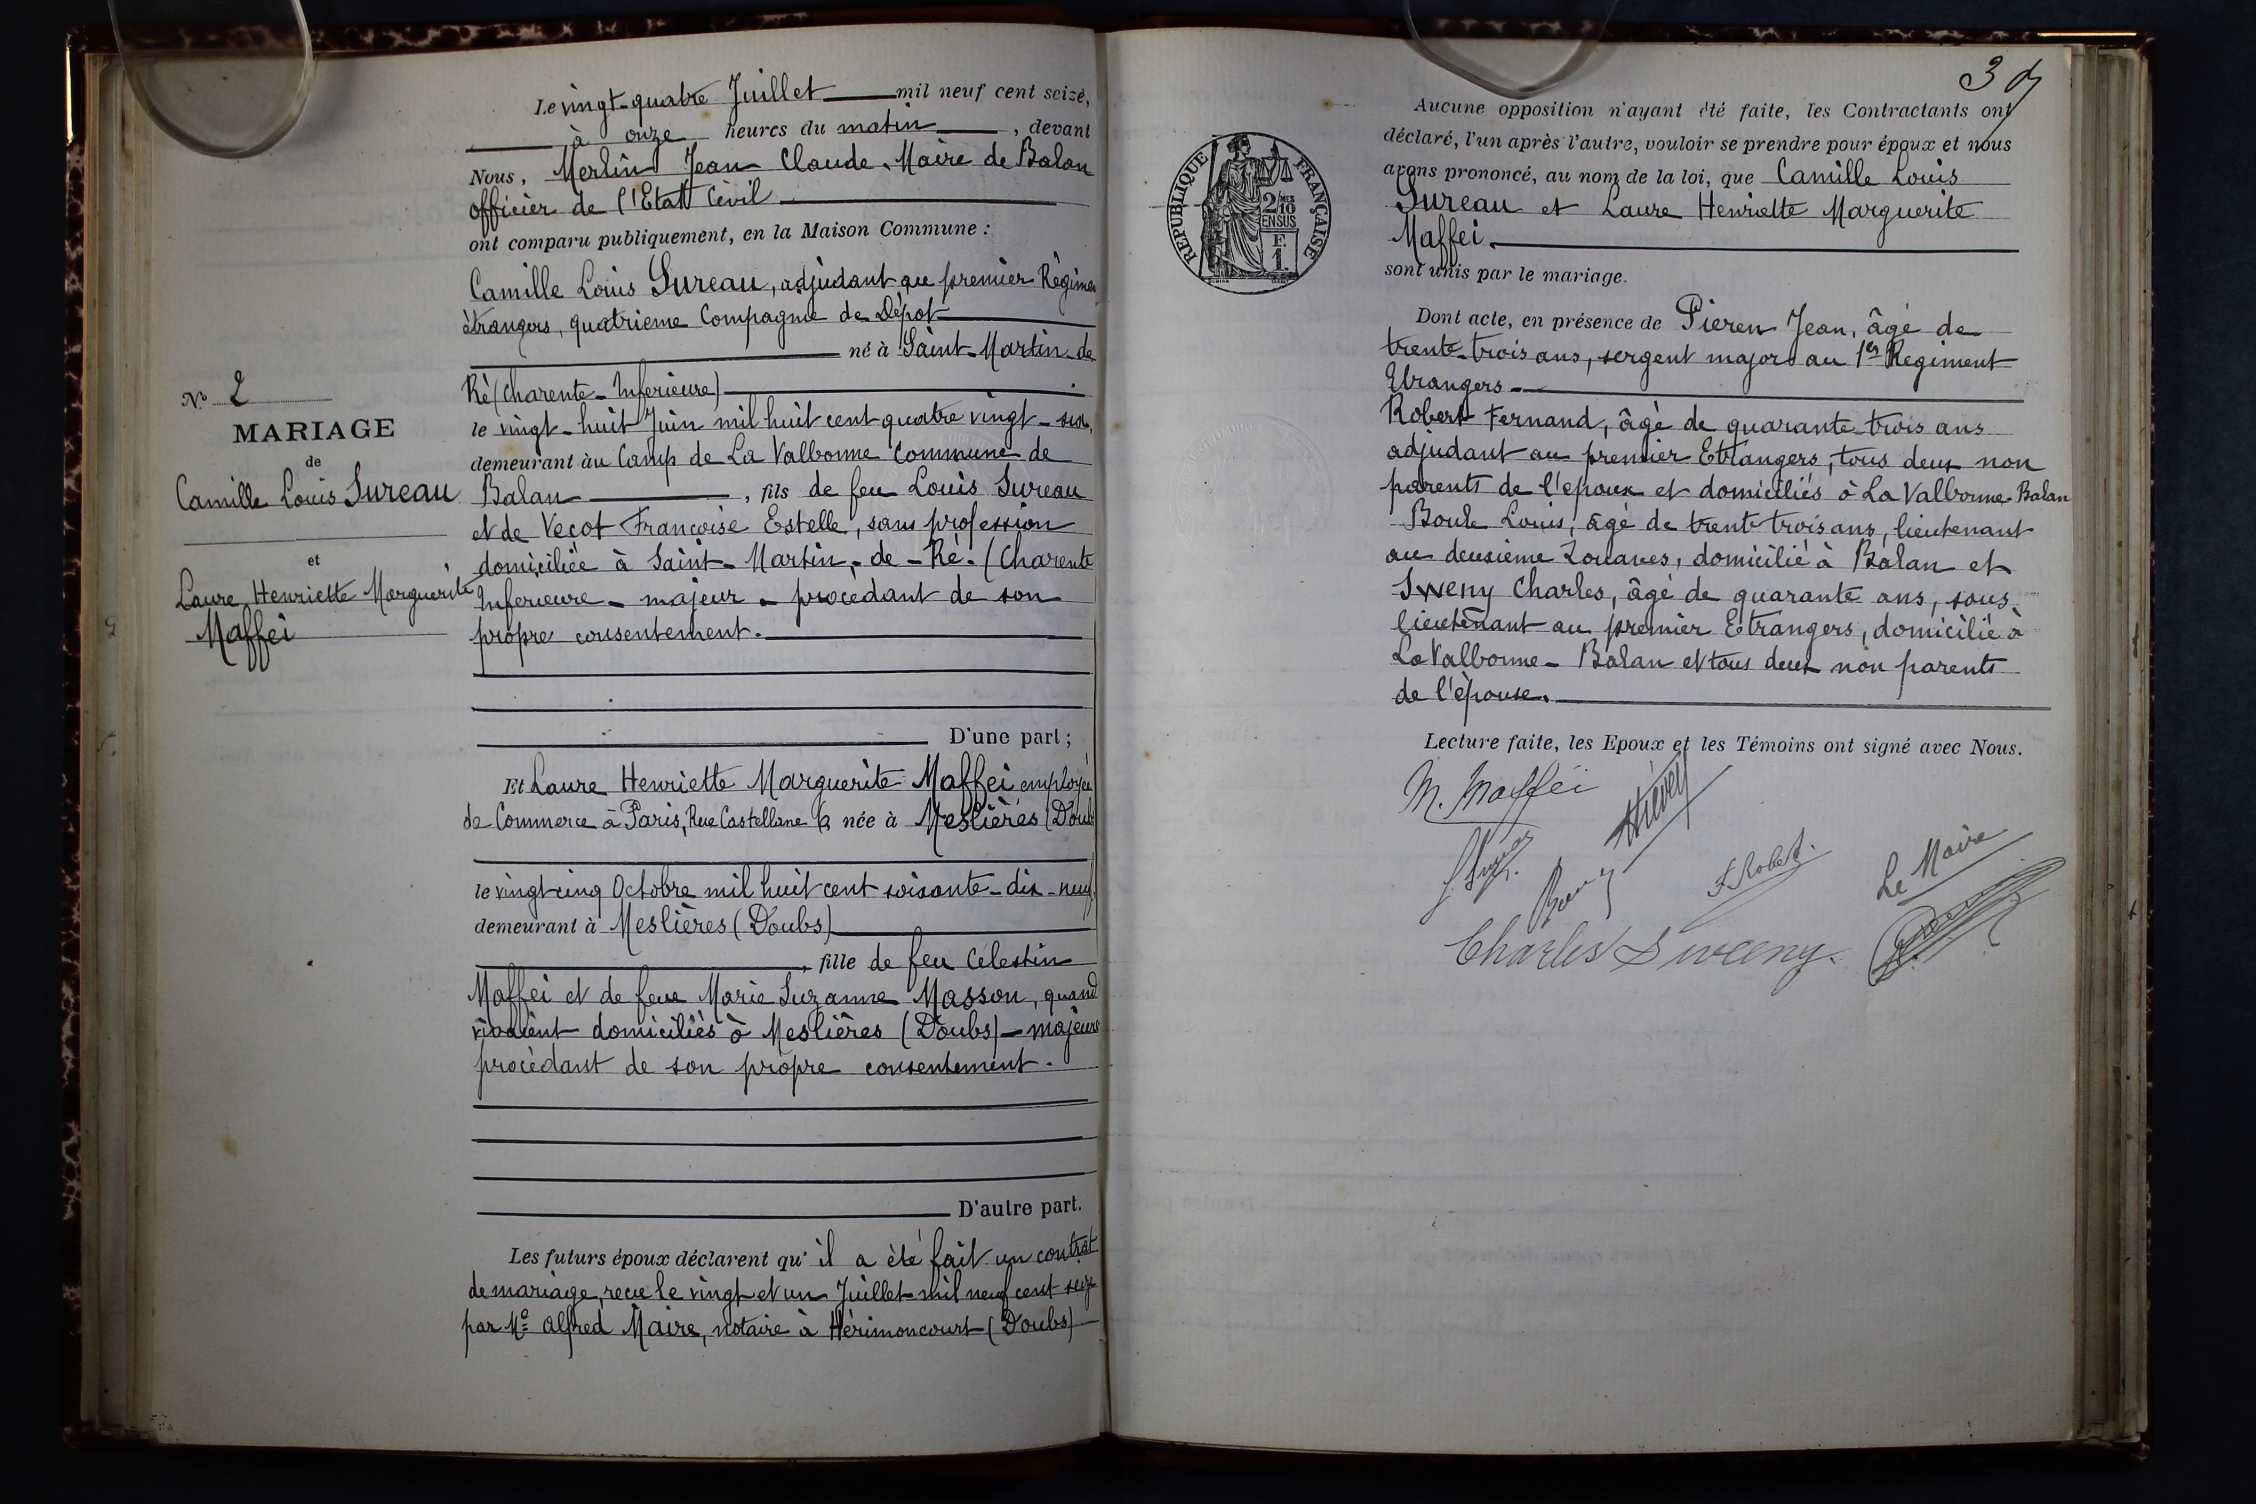 Le vingt-quatre Juillet mil neuf cent seize,
à onze heures du matin, devant
Nous, Merlin Jean Claude, Maire de Balan
officier de l'Etat Civil
ont comparu publiquement, en la Maison Commune :
Camille Louis Sureau, adjudant au premier Régimen
étrangers, quatrieme Compagnie de Dépot
né à Saint-Martin de
Ré (Charente-Inferieure)
le vingt-huit Juin mil huit cent quatre vingt-six,
demeurant au Camp de La Valbonne Commune de
Balan, fils de feu Louis Sureau
et de Vecot Françoise Estelle, sans profession
domiciliée à Saint-Martin-de-Ré. (Charente
Inferieure - majeur - procedant de son
propre consentement.
D'une part ;
Et Laure Henriette Marguerite Maffei employée
de Commerce à Paris, Rue Castellane née à Meslières (Doubs
le vingt cinq Octobre mil huit cent soixante-dix-neuf,
demeurant à Meslières (Doubs)
, fille de feu Celestin
Maffei et de feue Marie Suzanne Masson, quand
vivaient domiciliés à Meslières (Doubs) - majeure
procédant de son propre consentement.
D'autre part.
Les futurs époux déclarent qu'il a été fait un contrat
de mariage, recu le vingt et un Juillet mil neuf cent seize
par Me Alfred Maire, notaire à Hérimoncourt (Doubs)
No 2
MARIAGE
de
Camille Louis Sureau
et
Laure Henriette Marguerite
Maffei
3
Aucune opposition n'ayant été faite, les Contractants ont
déclaré, l'un après l'autre, vouloir se prendre pour époux et nous
avons prononcé, au nom de la loi, que Camille Louis
Sureau et Laure Henriette Marguerite
Maffei.
sont unis par le mariage.
Dont acte, en présence de Pieren Jean, âgé de
trente-trois ans, sergent major au 1er Regiment
Etrangers
Robert Fernand, âgé de quarante-trois ans
adjudant au premier Etrangers, tous deux non
parents de l'epoux et domiciliés à La Valbonne-Balan
Boule Louis, âgé de trente trois ans, lieutenant
au deuxième Zouaves, domicilié à Balan et
Sweny Charles, âgé de quarante ans, sous
lieutenant au premier Etrangers, domicilié à
La Valbonne - Balan et tous deux non parents
de l'épouse.
Lecture faite, les Epoux et les Témoins ont signé avec Nous.
M. Maffei
F. Robert.
Le Maire
Charles Sweeny.
REPUBLIQUE FRANÇAISE
2/10 EN SUS
F. 1.